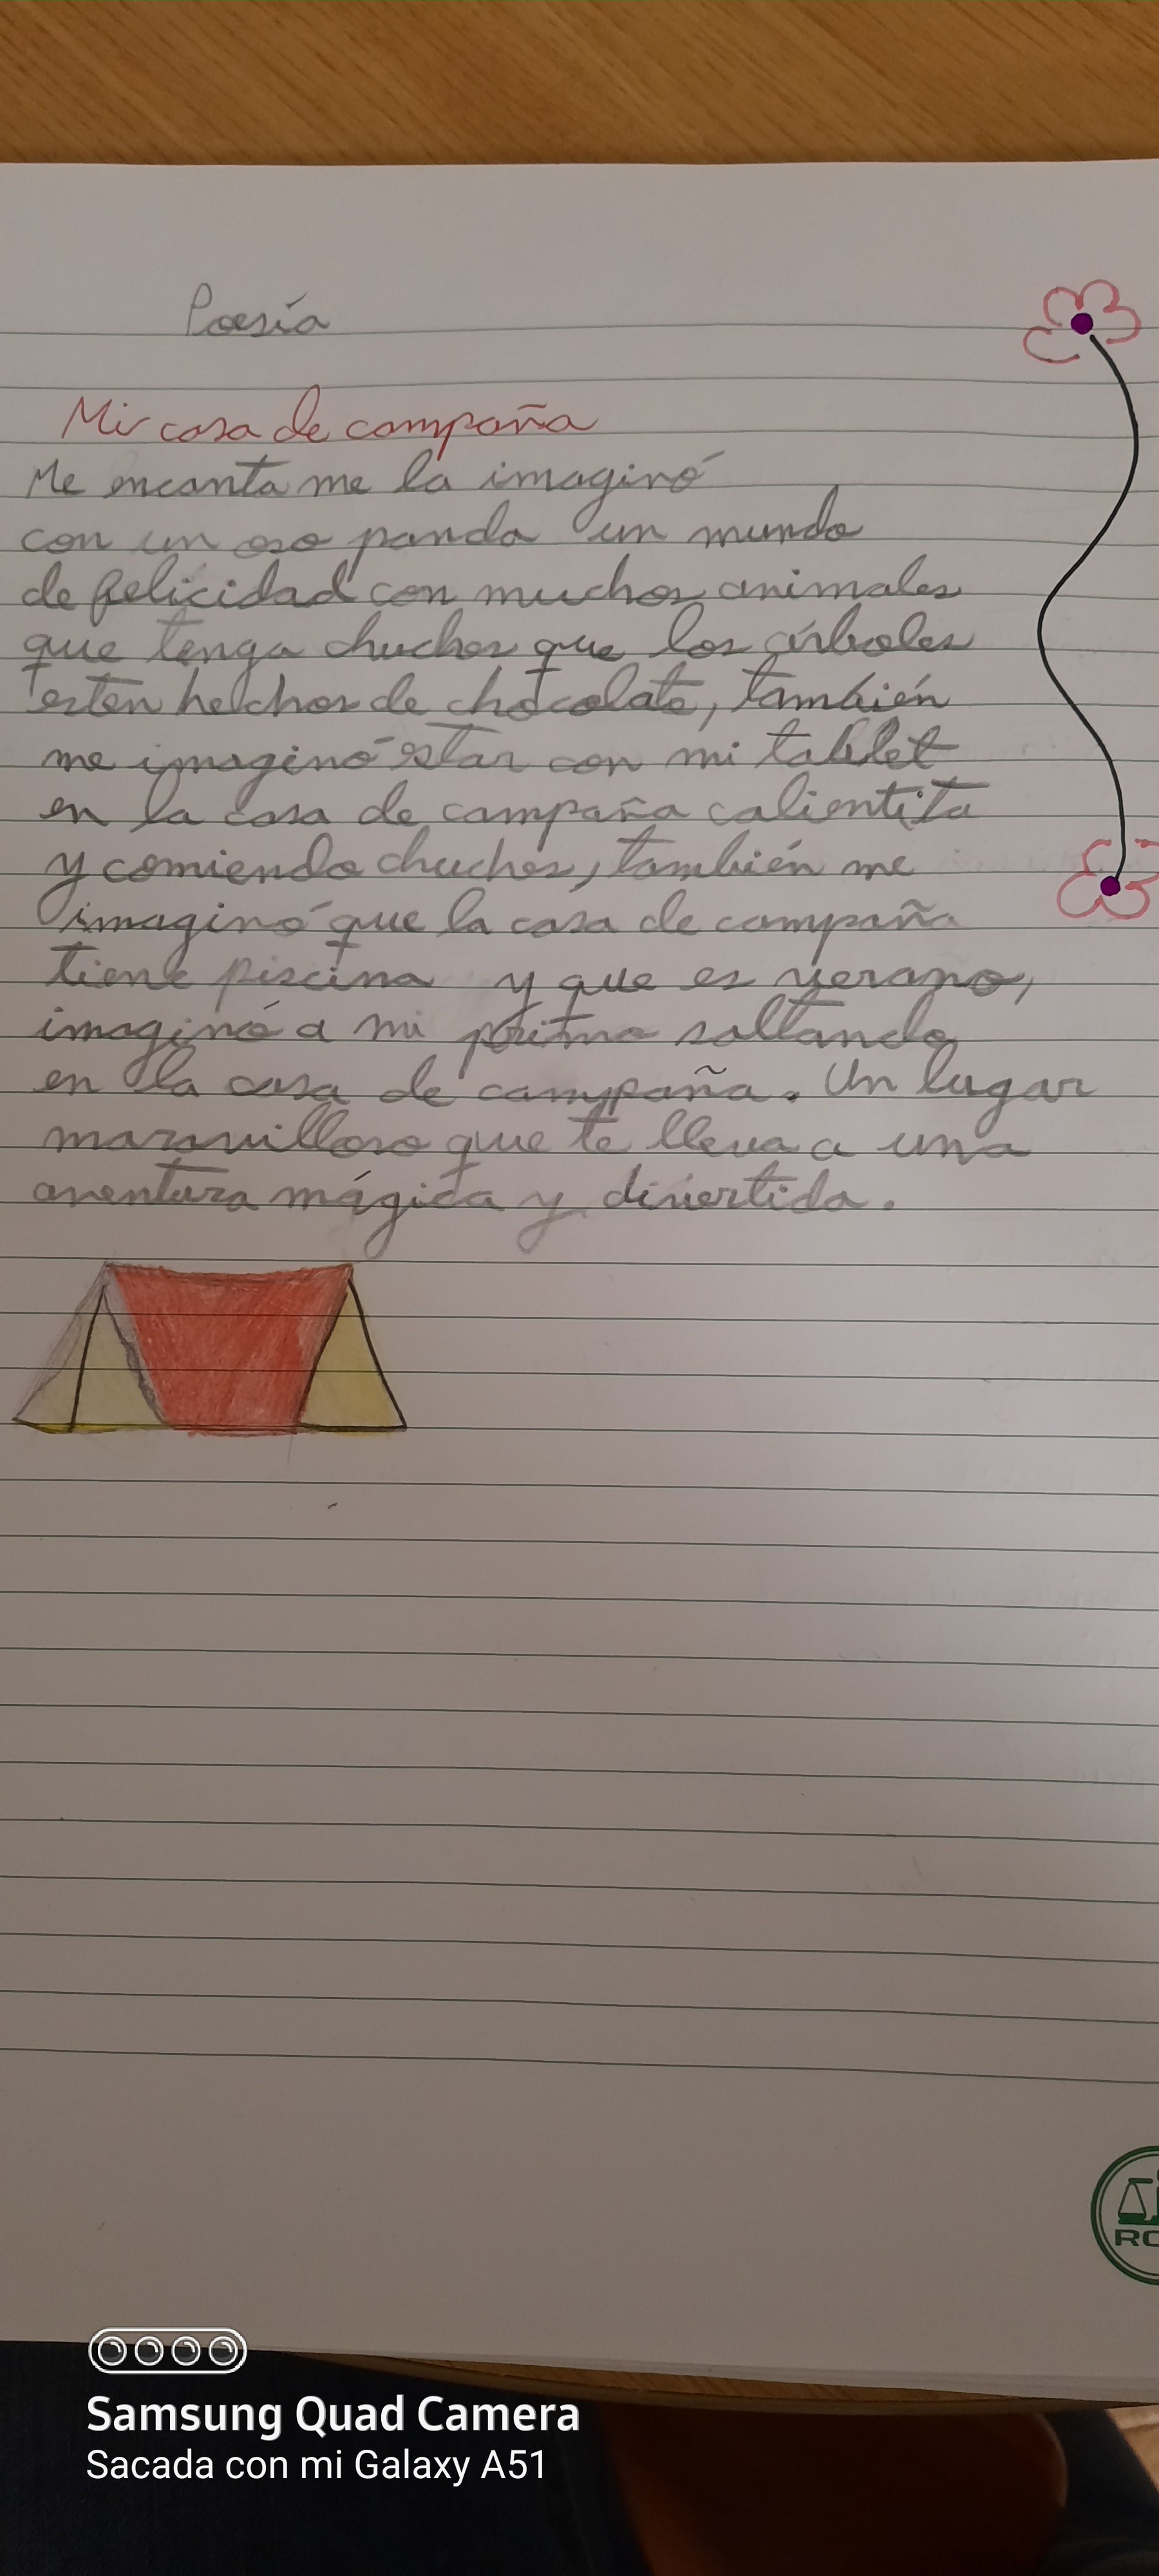 Poesía
Mi casa de campaña
Me encanta me la imaginó
con un oso panda un mundo
de felicidad con muchos animales
que tenga chuches que los árboles
esten helchos de chocolate, también
me imaginó estar con mi tablet
en la casa de campaña calientita
y comiendo chuches, también me
imaginó que la casa de campaña
tiene piscina y que es verano,
imaginó a mi primo saltando
en la casa de campaña. Un lugar
maravilloso que te lleva a una
aventura mágica y divertida.
Samsung Quad Camera
Sacada con mi Galaxy A51